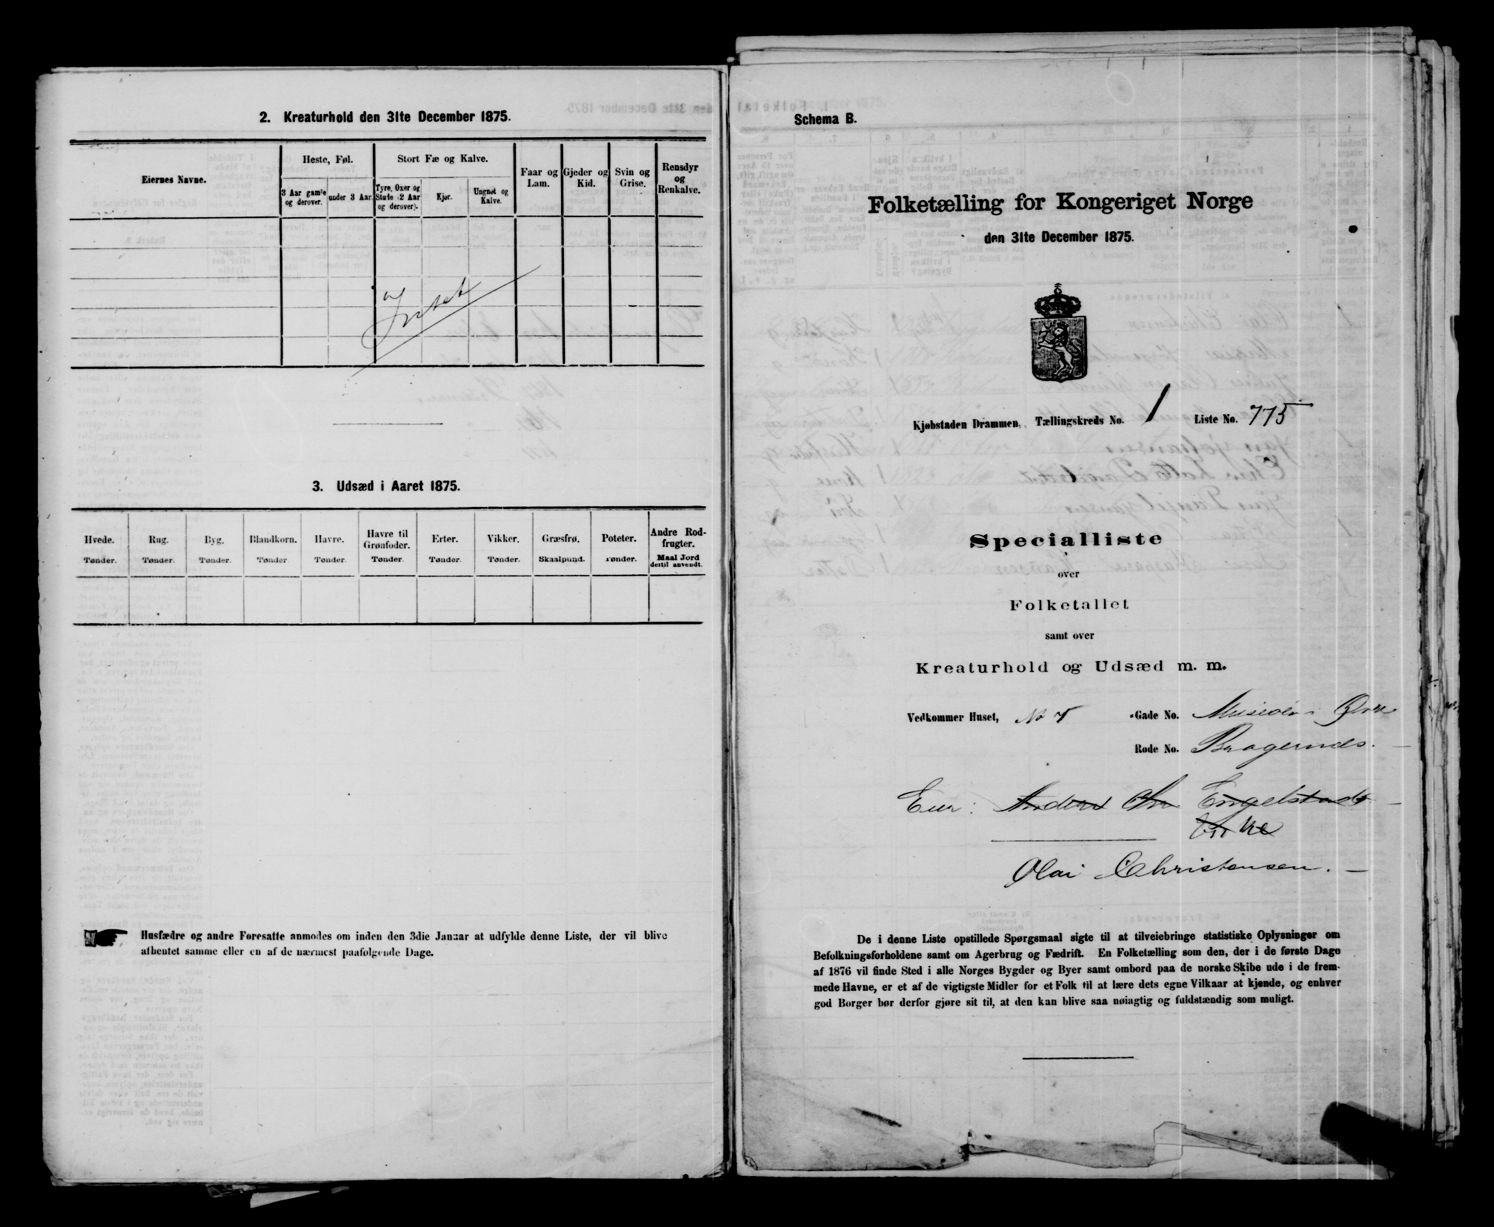 2. Kreaturhold den 31te December 1875.
Eiernes Navne.
Heste, Føl.
Stort Fæ og Kalve.
Faar og Lam.
Gjeder og Kid.
Svin og Grise.
Rensdyr og Renkalve.
3 Aar gamle og derover.
under 3 Aar.
Tyre, Oxer og Stude (2 Aar og derover).
Kjør.
Ungnøt og Kalve.
Intet
3. Udsæd i Aaret 1875.
Hvede. Rug. Byg. Blandkorn. Havre. Havre til Grønfoder. Erter. Vikker. Græsfrø. Poteter. Andre Rodfrugter.
Tønder. Tønder. Tønder. Tønder Tønder. Tønder. Tønder. Tønder. Skaalpund. Tønder. Maal Jord dertil anvendt.
Husfædre og andre Foresatte anmodes om inden den 3die Januar at udfylde denne Liste, der vil blive
afhentet samme eller en af de nærmest paafølgende Dage.
Schema B.
Folketælling for Kongeriget Norge
den 31te December 1875.
Kjøbstaden Drammen. Tællingskreds No. 1 Liste No. 775
Specialliste
over
Folketallet
samt over
Kreaturhold og Udsæd m. m.
Vedkommer Huset, No Gade No.
Rode No. Bragernes.
Eier: Engelstads
Olai Christensen.
De i denne Liste opstillede Spørgsmaal sigte til at tilveiebringe statistiske Oplysninger om
Befolkningsforholdene samt om Agerbrug og Fædrift. En Folketælling som den, der i de første Dage
af 1876 vil finde Sted i alle Norges Bygder og Byer samt ombord paa de norske Skibe ude i de frem-
mede Havne, er et af de vigtigste Midler for et Folk til at lære dets egne Vilkaar at kjende, og enhver
god Borger bør derfor gjøre sit til, at den kan blive saa nøiagtig og fuldstændig som muligt.